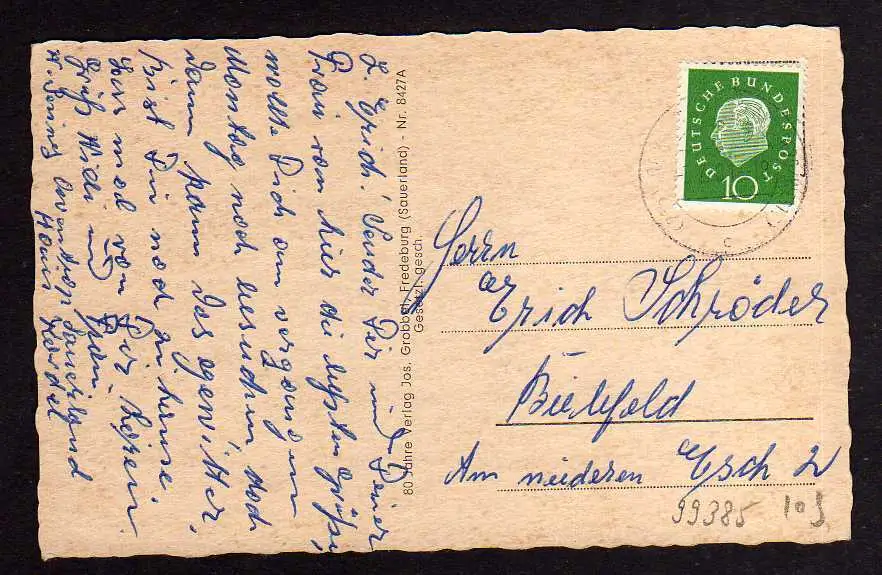 L. Erich! Sende Dir und Deiner
Frau von hier die letzten Grüße,
wollte Dich am vergangenen
Montag noch besuchen, doch
dann kam das Gewitter,
bist Du noch zu Hause.
Lass mal von Dir hören
Gruß Willi und Frau
Hans
80 Jahre Verlag Jos. Grobbel, Fredeburg (Sauerland) - Nr. 8427A
Gesetzl. gesch.
DEUTSCHE BUNDESPOST
10
Herrn
Erich Schröder
Bielefeld
Am niederen Esch 2
99385 10,